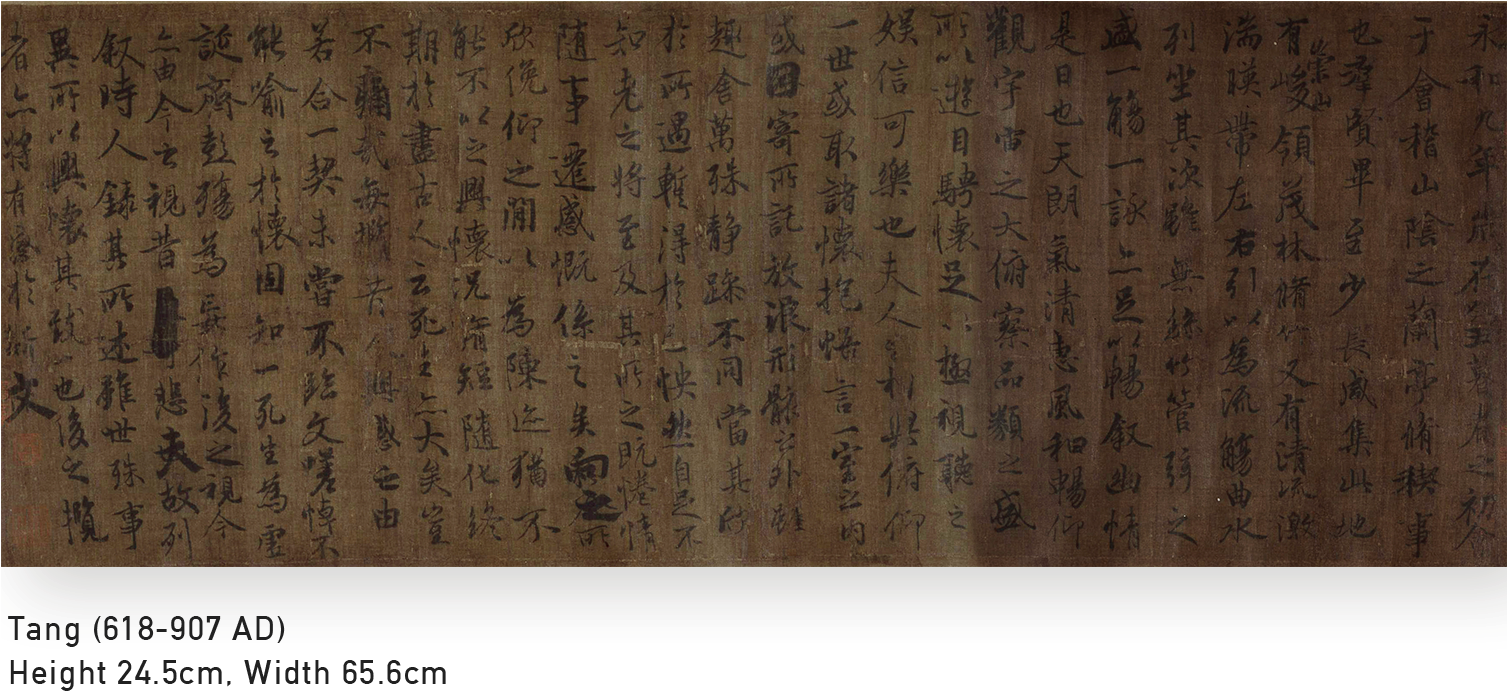 永和九年歲在癸丑暮春之初會
于會稽山陰之蘭亭脩稧事
也羣賢畢至少長咸集此地
有崇山峻領茂林脩竹又有清流激
湍暎帶左右引以為流觴曲水
列坐其次雖無絲竹管弦之
盛一觴一詠亦足以暢敘幽情
是日也天朗氣清惠風和暢仰
觀宇宙之大俯察品類之盛
所以遊目騁懷足以極視聽之
娛信可樂也夫人之相與俯仰
一世或取諸懷抱悟言一室之內
或因寄所託放浪形骸之外雖
趣舍萬殊靜躁不同當其欣
於所遇暫得於己怏然自足不
知老之將至及其所之既惓情
隨事遷感慨係之矣向之所
欣俛仰之閒以為陳迹猶不
能不以之興懷況脩短隨化終
期於盡古人云死生亦大矣豈
不痛哉每攬昔人興感之由
若合一契未嘗不臨文嗟悼不
能喻之於懷固知一死生為虛
誕齊彭殤為妄作後之視今
亦由今之視昔悲夫故列
敘時人錄其所述雖世殊事
異所以興懷其致一也後之攬
者亦將有感於斯文
Tang (618-907 AD)
Height 24.5cm, Width 65.6cm